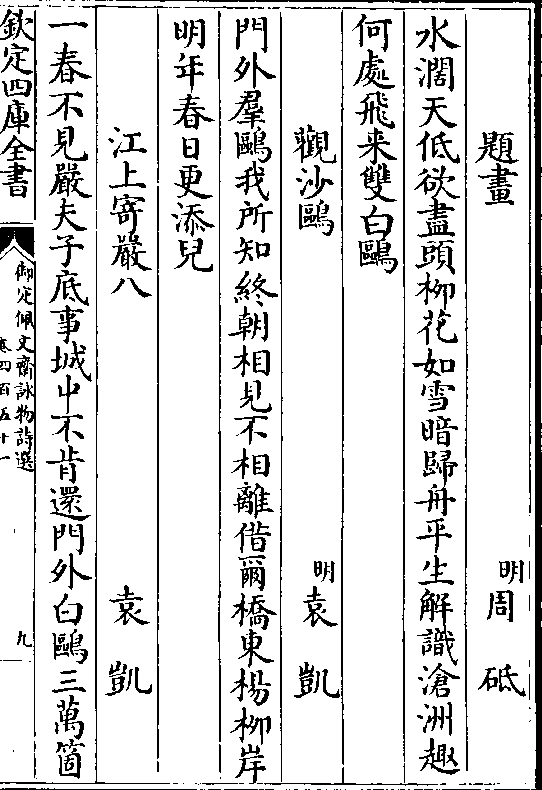 題畫 明周砥
水濶天低欲盡頭柳花如雪暗歸舟平生解識滄洲趣
何處飛来雙白鷗
觀沙鷗 明袁凱
門外羣鷗我所知終朝相見不相離借爾橋東楊柳岸
明年春日更添兒
江上寄嚴八 袁凱
一春不見嚴夫子底事城中不肯還門外白鷗三萬箇
欽定四庫全書
御定佩文齋詠物詩選
卷四百五十一
九